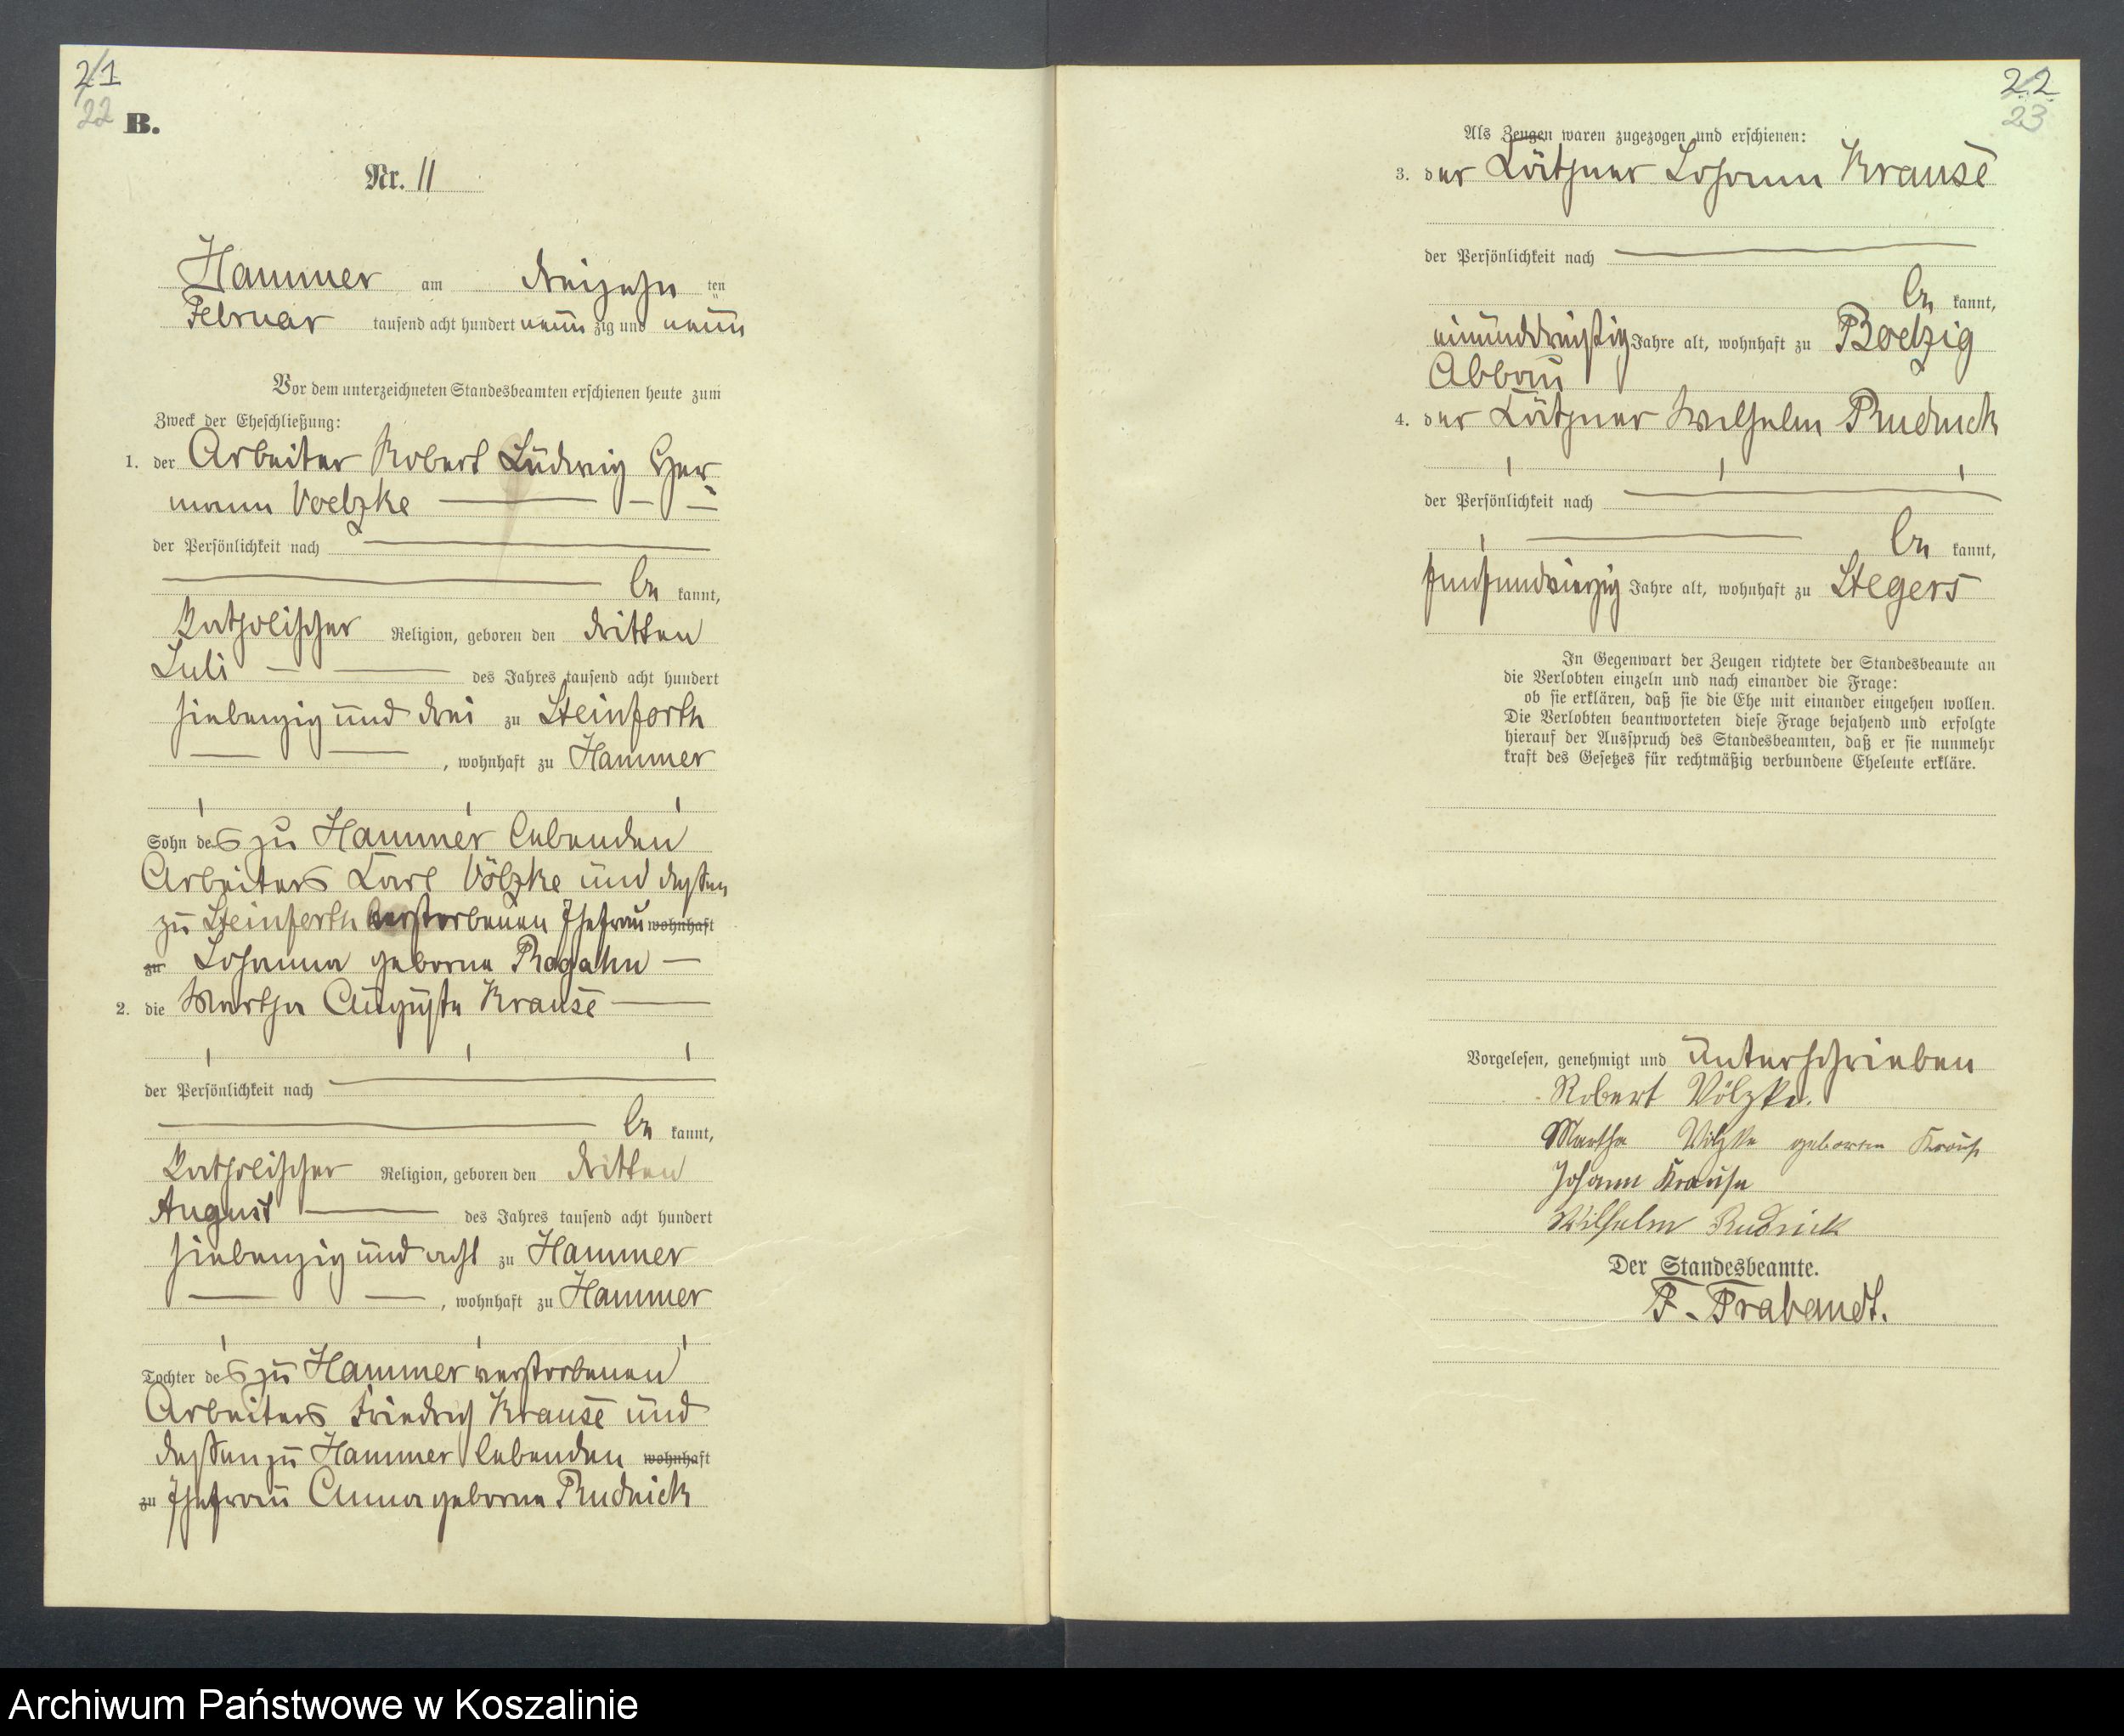 21
22
B.
Nr. 11
Hammer am dreizehn ten
Februar tausend acht hundert neun zig und neun
Vor dem unterzeichneten Standesbeamten erschienen heute zum
Zweck der Eheschließung:
1. der Arbeiter Robert Ludwig Her-
mann Voelzke
der Persönlichkeit nach
be kannt,
katholischer Religion, geboren den dritten
Juli des Jahres tausend acht hundert
siebenzig und drei zu Steinforth
, wohnhaft zu Hammer
Sohn des zu Hammer lebenden
Arbeiters Karl Völzke und dessen
zu Steinforth verstorbenen Ehefrau wohnhaft
zu Johanna geborne Rogahn
2. die Martha Auguste Krause
der Persönlichkeit nach
be kannt,
katholischer Religion, geboren den dritten
August des Jahres tausend acht hundert
siebenzig und acht zu Hammer
, wohnhaft zu Hammer
Tochter des zu Hammer verstorbenen
Arbeiters Friedrich Krause und
dessen zu Hammer lebenden wohnhaft
zu Ehefrau Anna geborne Rudnick
22
23
Als Zeugen waren zugezogen und erschienen:
3. der Kätner Johann Krause
der Persönlichkeit nach
be kannt,
einunddreißig Jahre alt, wohnhaft zu Boelzig
Abbau
4. der Kätner Wilhelm Rudnick
der Persönlichkeit nach
be kannt,
fünfundvierzig Jahre alt, wohnhaft zu Stegers
In Gegenwart der Zeugen richtete der Standesbeamte an
die Verlobten einzeln und nach einander die Frage:
ob sie erklären, daß sie die Ehe mit einander eingehen wollen.
Die Verlobten beantworteten diese Frage bejahend und erfolgte
hierauf der Ausspruch des Standesbeamten, daß er sie nunmehr
kraft des Gesetzes für rechtmäßig verbundene Eheleute erkläre.
Vorgelesen, genehmigt und unterschrieben
Robert Völzke.
Martha Völzke geborene Krause
Johann Krause
Wilhelm Rudnick
Der Standesbeamte.
F. Trabandt.
Archiwum Państwowe w Koszalinie